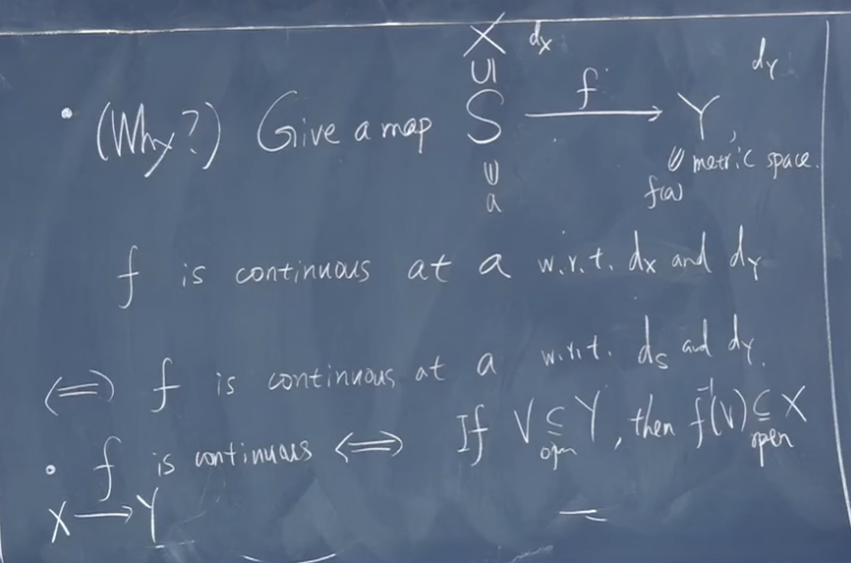 X d_X
∪| d_Y
• (Why?) Give a map S —f→ Y,
∪| metric space.
a f(a)
f is continuous at a w.r.t. d_X and d_Y
⟺ f is continuous at a w.r.t. d_S and d_Y.
• f is continuous ⟺ If V ⊆ Y, then f⁻¹(V) ⊆ X
open open
X → Y